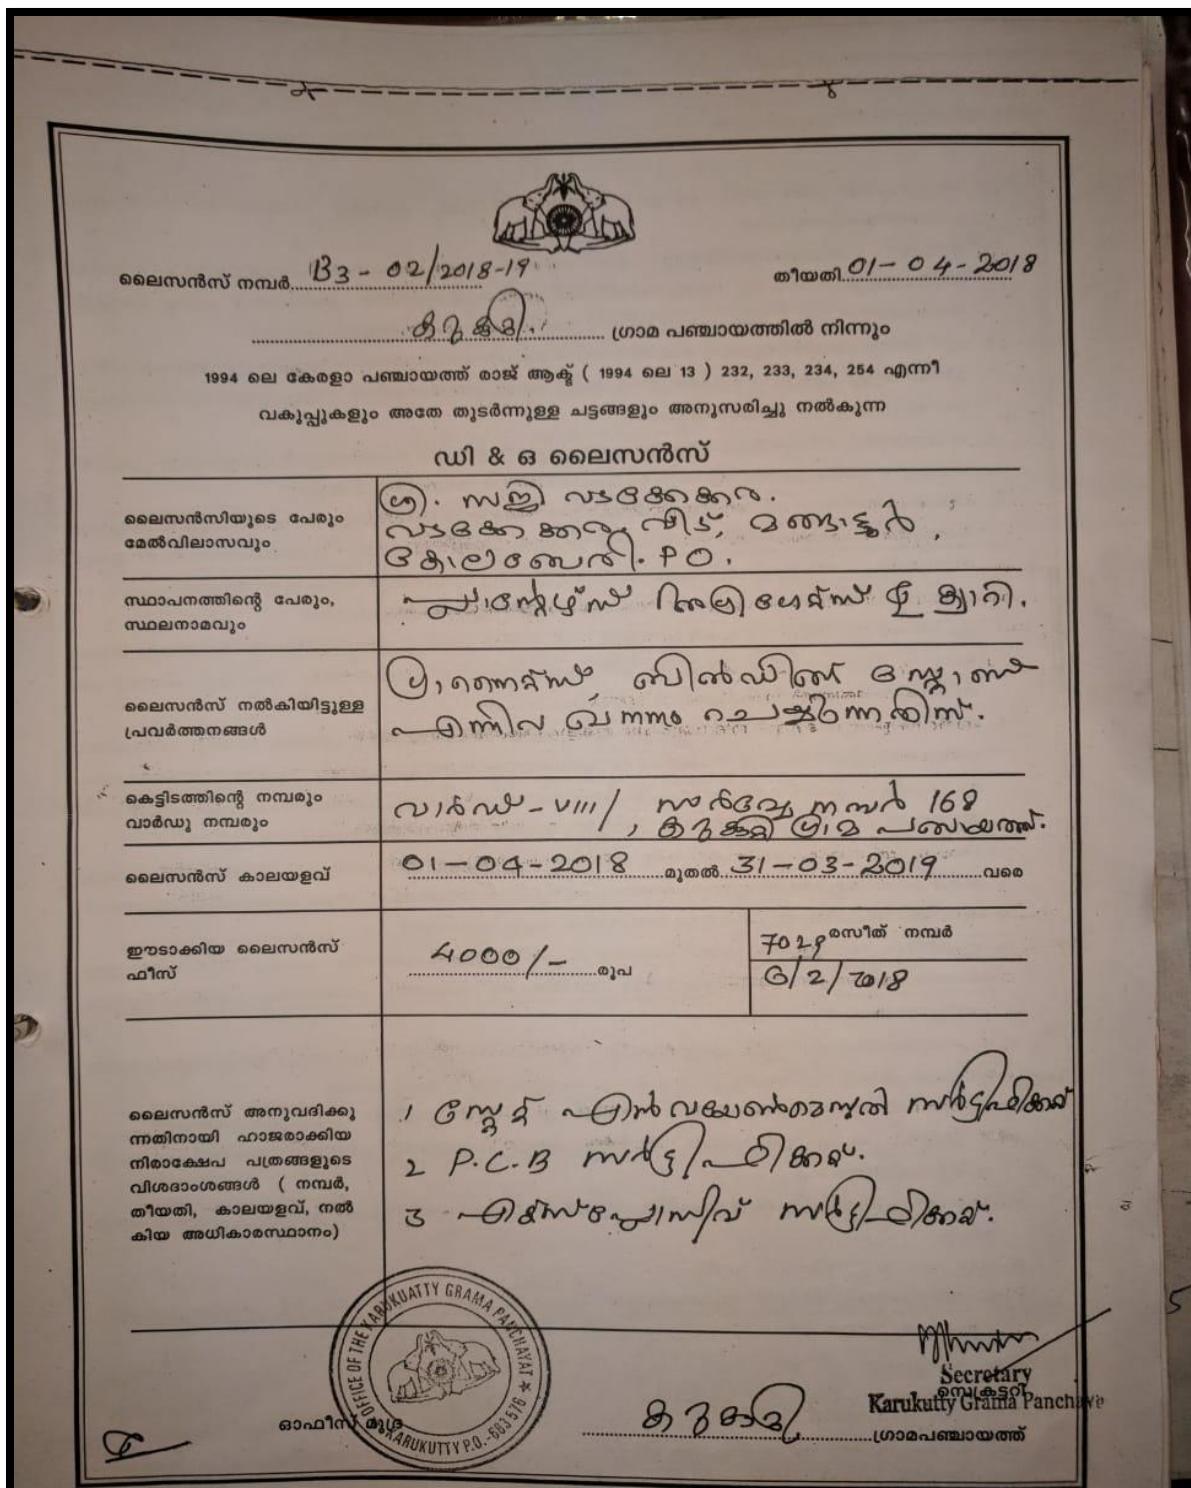 ലൈസൻസ് നമ്പർ B3 - 02/2018-19 തീയതി 01-04-2018
ഗ്രാമ പഞ്ചായത്തിൽ നിന്നും
1994 ലെ കേരളാ പഞ്ചായത്ത് രാജ് ആക്ട് ( 1994 ലെ 13 ) 232, 233, 234, 254 എന്നീ
വകുപ്പുകളും അതേ തുടർന്നുള്ള ചട്ടങ്ങളും അനുസരിച്ചു നൽകുന്ന
ഡി & ഒ ലൈസൻസ്
ലൈസൻസിയുടെ പേരും
മേൽവിലാസവും
ശ്രീ. സജി വടക്കേക്കര.
വടക്കേക്കര വീട്,
P O.
സ്ഥാപനത്തിന്റെ പേരും,
സ്ഥലനാമവും
ക്വാറി.
ലൈസൻസ് നൽകിയിട്ടുള്ള
പ്രവർത്തനങ്ങൾ
ഗ്രാനൈറ്റ്സ്, ബിൽഡിങ്ങ് സ്റ്റോൺ
എന്നിവ ഖനനം ചെയ്യുന്നതിന്.
കെട്ടിടത്തിന്റെ നമ്പരും
വാർഡു നമ്പരും
വാർഡ് - VIII/ സർവ്വേ നമ്പർ 168
ഗ്രാമ പഞ്ചായത്ത്.
ലൈസൻസ് കാലയളവ്
01-04-2018 മുതൽ 31-03-2019 വരെ
ഈടാക്കിയ ലൈസൻസ്
ഫീസ്
4000/- രൂപ
രസീത് നമ്പർ
/2/2018
ലൈസൻസ് അനുവദിക്കു
ന്നതിനായി ഹാജരാക്കിയ
നിരാക്ഷേപ പത്രങ്ങളുടെ
വിശദാംശങ്ങൾ ( നമ്പർ,
തീയതി, കാലയളവ്, നൽ
കിയ അധികാരസ്ഥാനം)
1 സ്റ്റേറ്റ് സർട്ടിഫിക്കറ്റ്
2 P.C.B സർട്ടിഫിക്കറ്റ്.
3 എക്സ്പ്ലോസീവ് സർട്ടിഫിക്കറ്റ്.
OFFICE OF THE KARUKUATTY GRAMA PANCHAYAT ★
KARUKUTTY P.O.-683 576
ഓഫീസ് മുദ്ര
Secretary
സെക്രട്ടറി
Karukutty Grama Panchaya
ഗ്രാമപഞ്ചായത്ത്